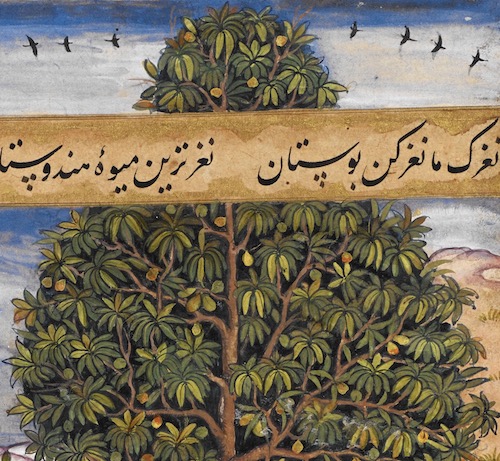 نغزک ما نغز کن بوستان نغزترین میوهٔ هندوستا